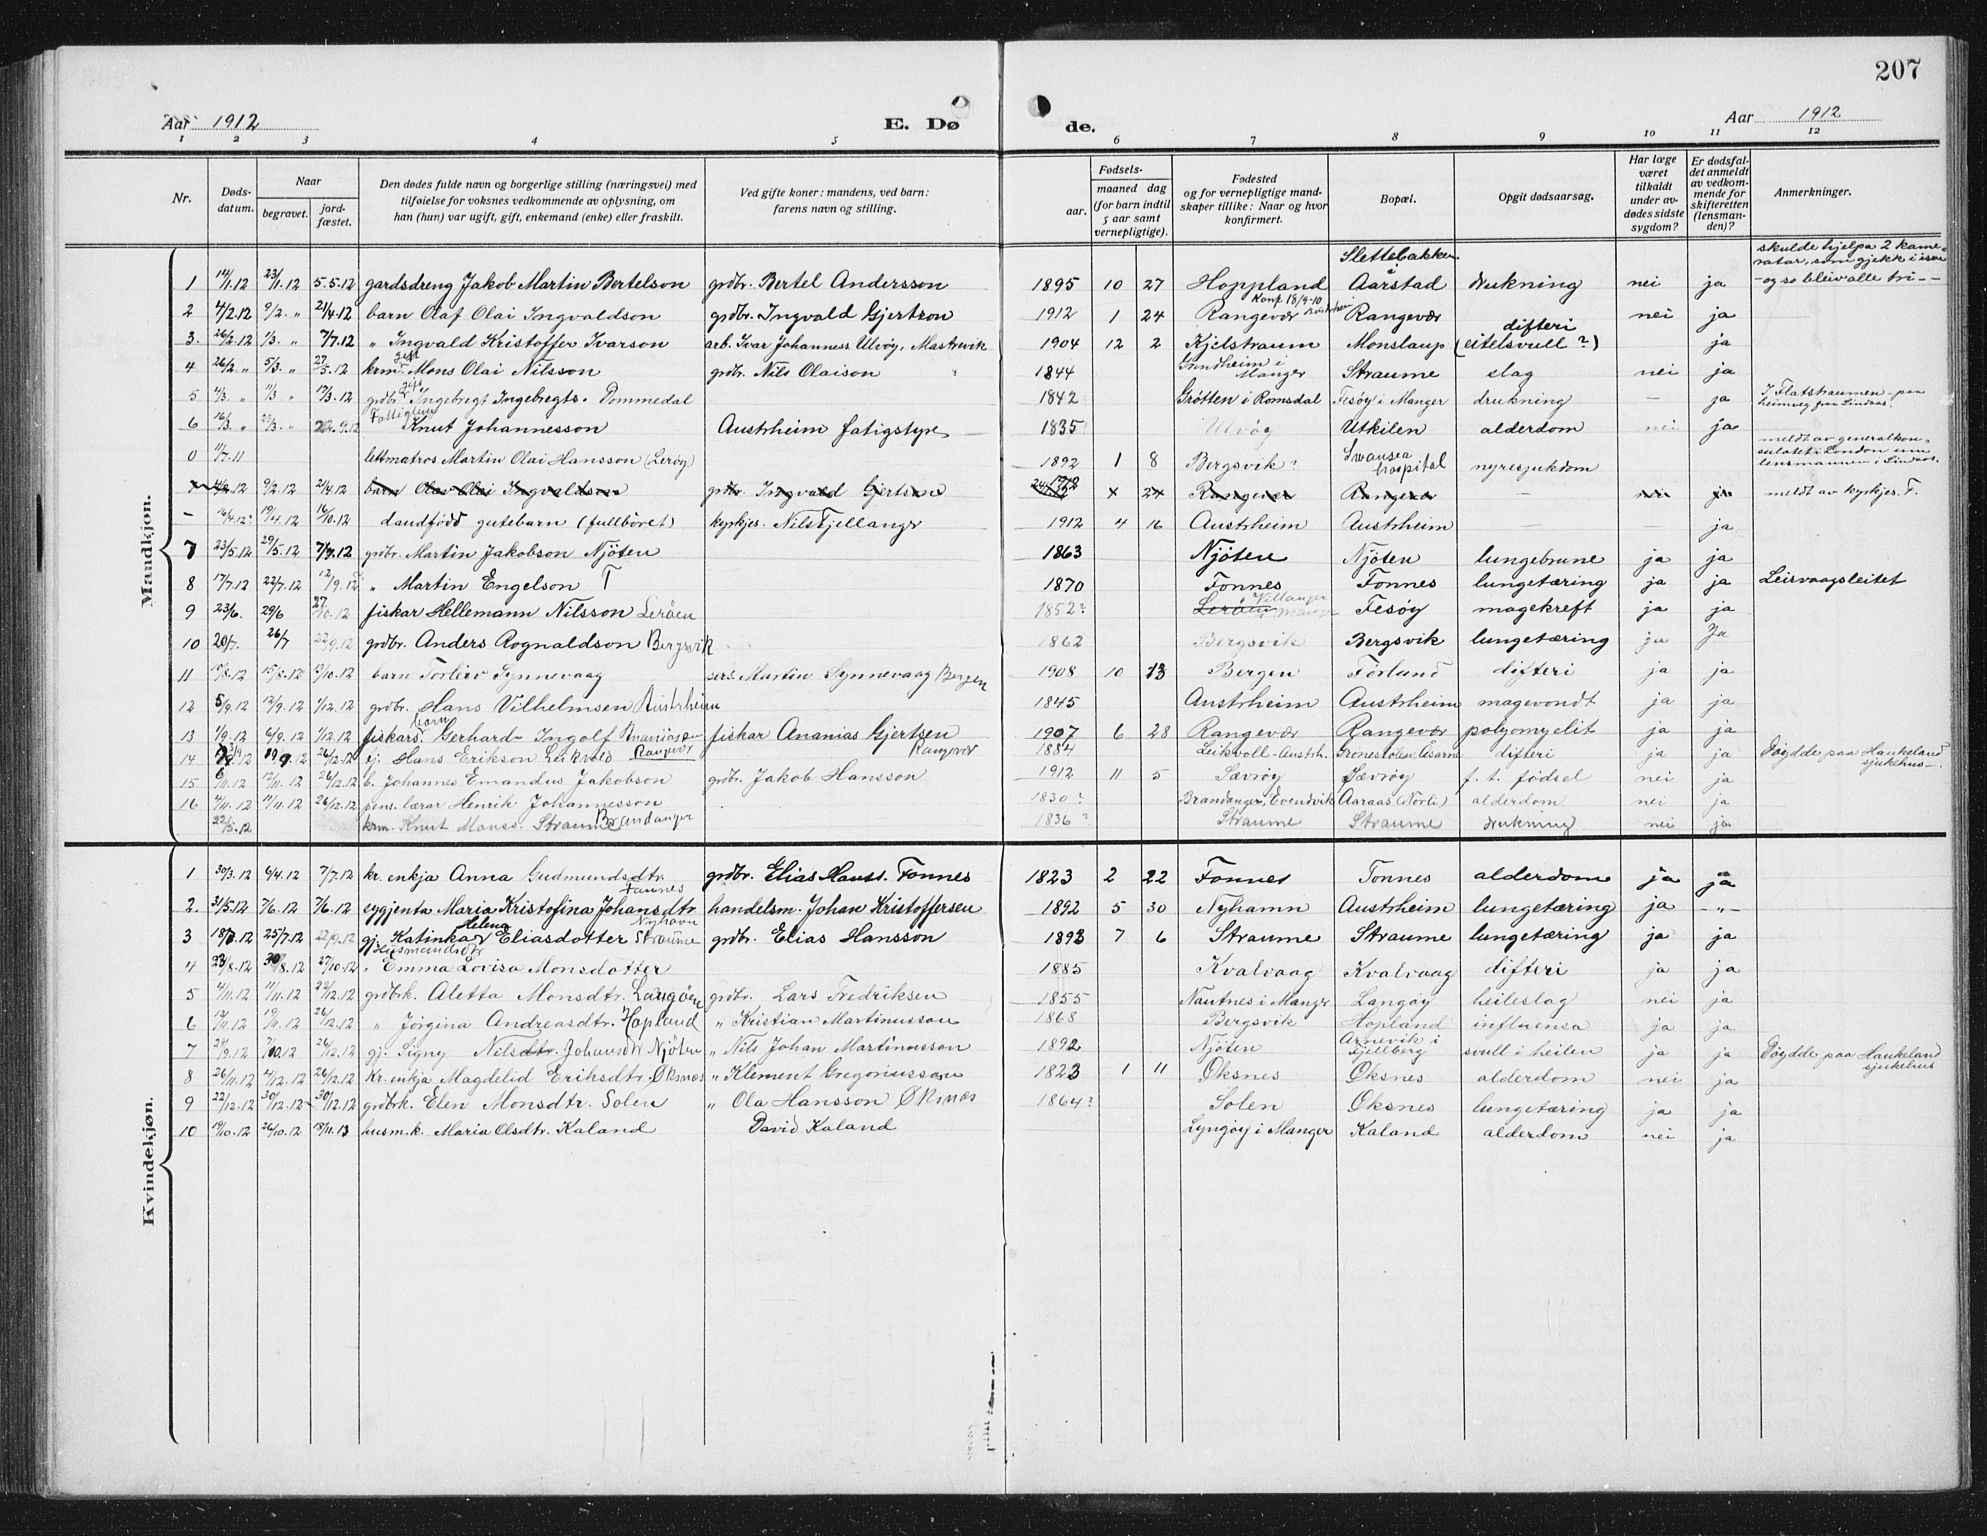 207
Aar 1912 E. Dø de. Aar 1912
1 2 3 4 5 6 7 8 9 10 11 12
Nr.
Døds-
datum.
Naar
begravet.
jord-
fæstet.
Den dødes fulde navn og borgerlige stilling (næringsvei) med
tilføielse for voksnes vedkommende av oplysning, om
han (hun) var ugift, gift, enkemand (enke) eller fraskilt.
Ved gifte koner: mandens, ved barn:
farens navn og stilling.
Fødsels-
aar.
maaned dag
(for barn indtil
5 aar samt
vernepligtige).
Fødested
og for vernepligtige mand-
skaper tillike: Naar og hvor
konfirmert.
Bopæl.
Opgit dødsaarsag.
Har læge
været
tilkaldt
under av-
dødes sidste
sygdom?
Er dødsfal-
det anmeldt
av vedkom-
mende for
skifteretten
(lensman-
den)?
Anmerkninger.
Mandkjøn.
1 14/1.12 23/1.12 5.5.12 gardsdreng Jakob Martin Bertelson grdbr. Bertel Andersson 1895 10 27 Hoppland Slettebakken å Aarstad drukning nei ja skulde hjelpa 2 kame-
ratar, som gjekk i isen
- og so bleiv alle tri -
2 4/2.12 9/2. " 21/4.12 barn Olaf Olai Ingvaldson grdbr. Ingvald Gjertson 1912 1 24 Rangevær Rangevær nei ja
3. 26/2.12 1/3. " 7/7.12 " Ingvald Kristoffer Ivarson arb. Ivar Johanness Ulvøy, Mastrevik 1904 12 2 Kjelstraum Monslaup difteri (eitelsvull?) ja
4 26/2. " 5/3. " 27/5.12 krm. gift Mons Olai Nilsson grdbr. Nils Olaison 1844 Grindheim i Manger Straume slag nei ja
5 4/3. " 11/3 " 17/3.12 grdbr. gift Ingebregt Ingebregts. Dommedal 1842 Grøtten i Romsdal Fesøy i Manger drukning - ja I Flatstraumen - paa
heimveg fraa Lindaas.
6 16/3. " 23/3. " 22.9.12 Fattiglem Knut Johannesson Austrheim fatigstyre 1835 Ulvøy Utkilen alderdom nei ja
0 11/7.11 lettmatros Martin Olai Hansson (Lerøy) 1892 1 8 Bergsvik? Swansea hospital nyresjukdom meldt av generalkon-
sulatet i London um
lensmannen i Lindaas.
4/2.12 9/2.12 21/4.12 barn Olav Olai Ingvaldson grdbr. Ingvald Gjertson 24 Rangevær Rangevær - nei ja meldt av kyrkjes. F.
- 16/4.12? 19/4.12 16/10.12 daudfødd gutebarn (fullbøret) kyrkjes. Nils Fjellanger 1912 4 16 Austrheim Austrheim - - ja
7 23/5.12 29/5.12 7/7.12 grdbr. Martin Jakobson Njøten 1863 Njøten Njøten lungebrune ja ja
8 17/7.12 22/7.12 12/9.12 " Martin Engelson T 1870 Fonnes Fonnes lungetæring ja ja Leirvaagsleitet
9 23/6. 29/6 27/10.12 fiskar Hellemann Nilsson Lerøen 1852? Lerøen Villanger Manger Fesøy magekreft ja ja
10 20/7. 26/7 22/9.12 grdbr. Anders Rognaldson Bergsvik 1862 Bergsvik Bergsvik lungetæring ja Ja
11 10/8.12 15/8.12 13/10.12 barn Torleiv Synnevaag sers. Martin Synnevaag Bergen 1908 10 13 Bergen Førland difteri ja ja
12 5/9.12 12/9.12 1/12.12 grdbr. Hans Vilhelmsen Austrheim 1845 Austrheim Austrheim magevondt ja ja
13 1/9.12 6/9.12 1/12.12 fiskars. barn Gerhard Ingolf Ananiasson Rangevær fiskar Ananias Gjertsen Rangevær 1907 6 28 Rangevær Rangevær polyomyelit ja ja
14 26/12.12 Hans Erikson Leikvold 1884 Leikvoll-Austrh. Grønestølen Åsarne difteri ja ja Døydde paa Haukeland
sjukehus -
15 6/11.12 12/11.12 26/12.12 b. Johannes Emandus Jakobson grdbr. Jakob Hansson 1912 11 5 Sævrøy Sævrøy f. t. fødsel nei ja
16 4/11.12 11/11.12 26/12.12 pens. lærar Henrik Johannesson Brandanger 1830? Brandanger, Evendvik Aaraas (Norli) alderdom nei ja
22/5.12 krm. Knut Monss. Straume 1836? Straume Straume drukning nei ja
Kvindekjøn.
1 30/3.12 6/4.12 7/7.12 kr. enkja Anna Gudmundsdtr. Fannes grdbr. Elias Hanss. Fonnes 1823 2 22 Fonnes Fonnes alderdom ja ja
2. 31/5.12 7/6.12 7/6.12 sygjenta Maria Kristofina Johansdtr Nyhavn handelsm. Johan Kristoffersen 1892 5 30 Nyhamn Austrheim lungetæring ja - " -
3 18/7.12 25/7.12 22/9.12 gj. Katinka Helena Eliasdotter Straume grdbr. Elias Hansson 1893 7 6 Straume Straume lungetæring ja ja
4 23/8.12 30/8.12 27/10.12 " Emma Lovisa Monsdotter 1885 Kvalvaag Kvalvaag difteri ja ja
5 4/11.12 11/11.12 22/12.12 grdbrk. Aletta Monsdtr. Langøen grdbr. Lars Fredriksen 1855 Nautnes i Manger Langøy heileslag nei ja
6 13/11.12 19/11.12 26/12.12 " Jørgina Andreasdtr. Hopland " Kristian Martinusson 1868 Bergsvik Hopland influensa ja ja
7 26/12.12 gj. Signy Nilsdtr. Johansdtr Njøten " Nils Johan Martinusson 1892 Njøten Arnevik i Fjellberg svull i heilen ja ja Døydde paa Haukeland
sjukehus
8 26/11.12 4/12.12 26/12.12 kr. enkja Magdelid Eriksdtr. Øksnes " Klement Gregoriusson 1823 1 11 Øksnes Øksnes alderdom nei ja
9 22/12.12 30/12.12 30/12.12 grdbrk. Elen Monsdtr. Solen " Ola Hansson Øksnes 1864? Solen Øksnes lungetæring ja ja
10 19/10.12 26/10.12 18/11.13 husm.k. Maria Olsdtr. Kaland David Kaland Lyngøy i Manger Kaland alderdom nei ja